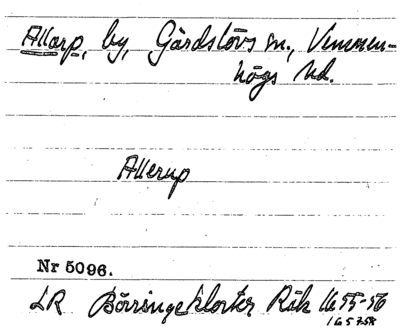 Allarp, by, Gärdslövs sn., Vemmen-
högs hd.
Allerup
Nr 5096.
LR Börringekloster Räk 1655-56